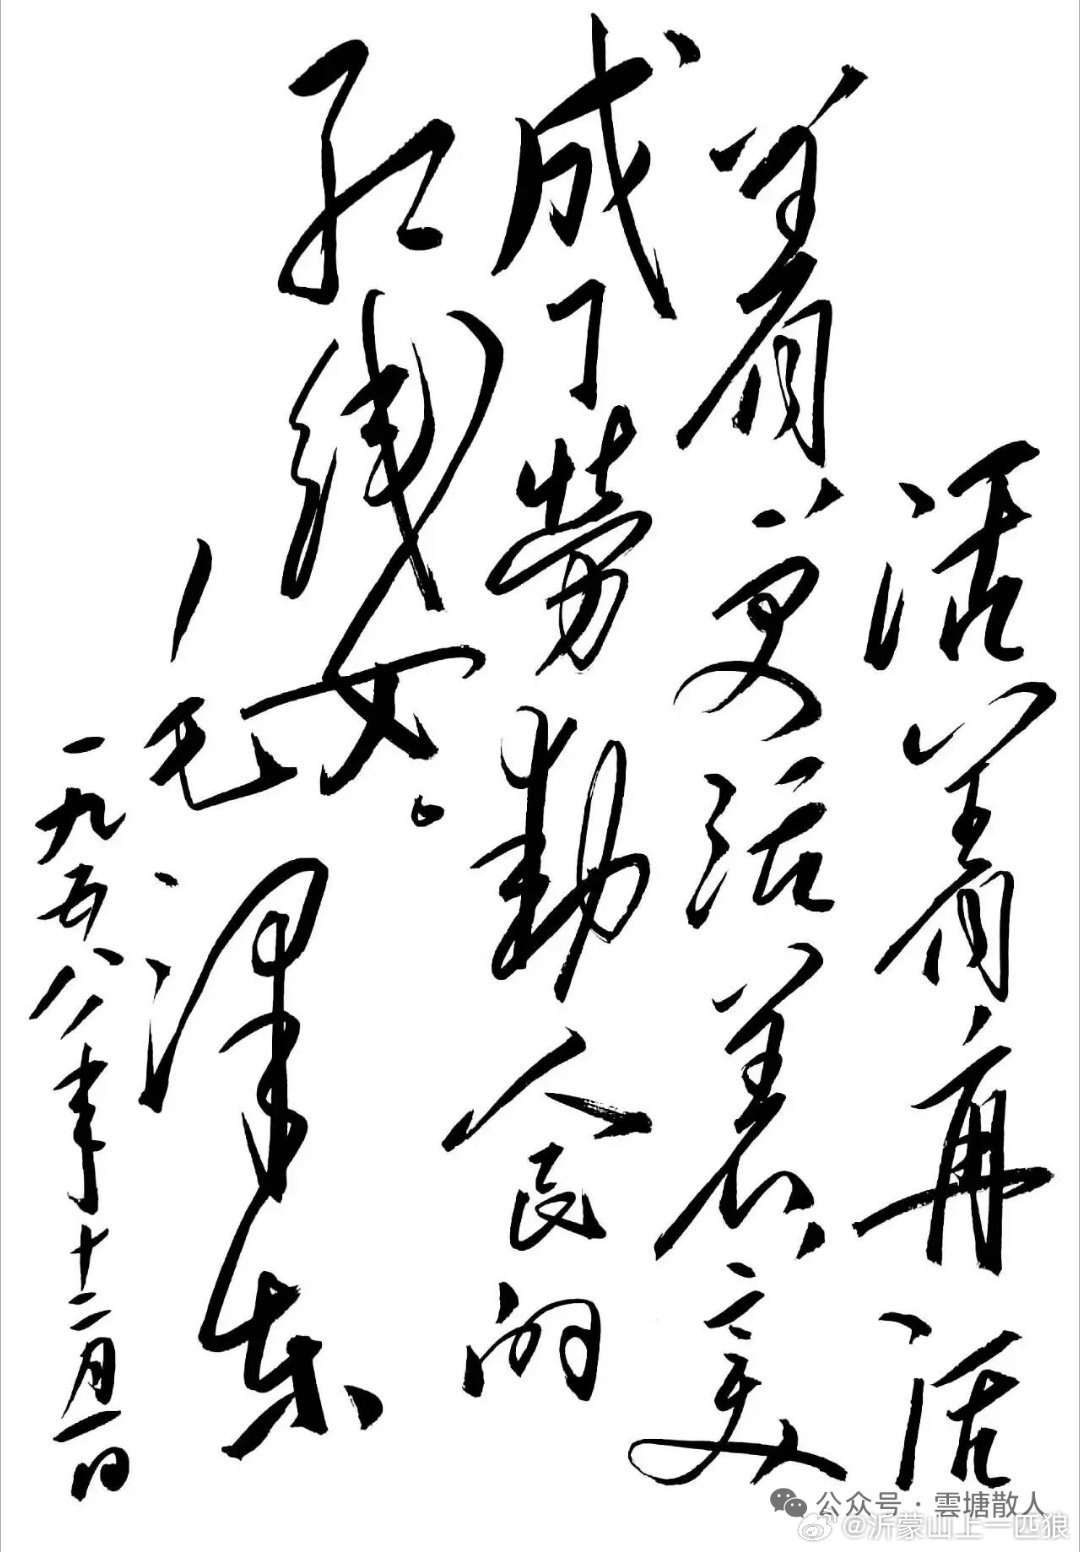 活着再活
着、更活着、变
成了劳动人民的
红线女。
毛泽东
一九五八年十二月一日
公众号·雲塘散人
@沂蒙山上一匹狼